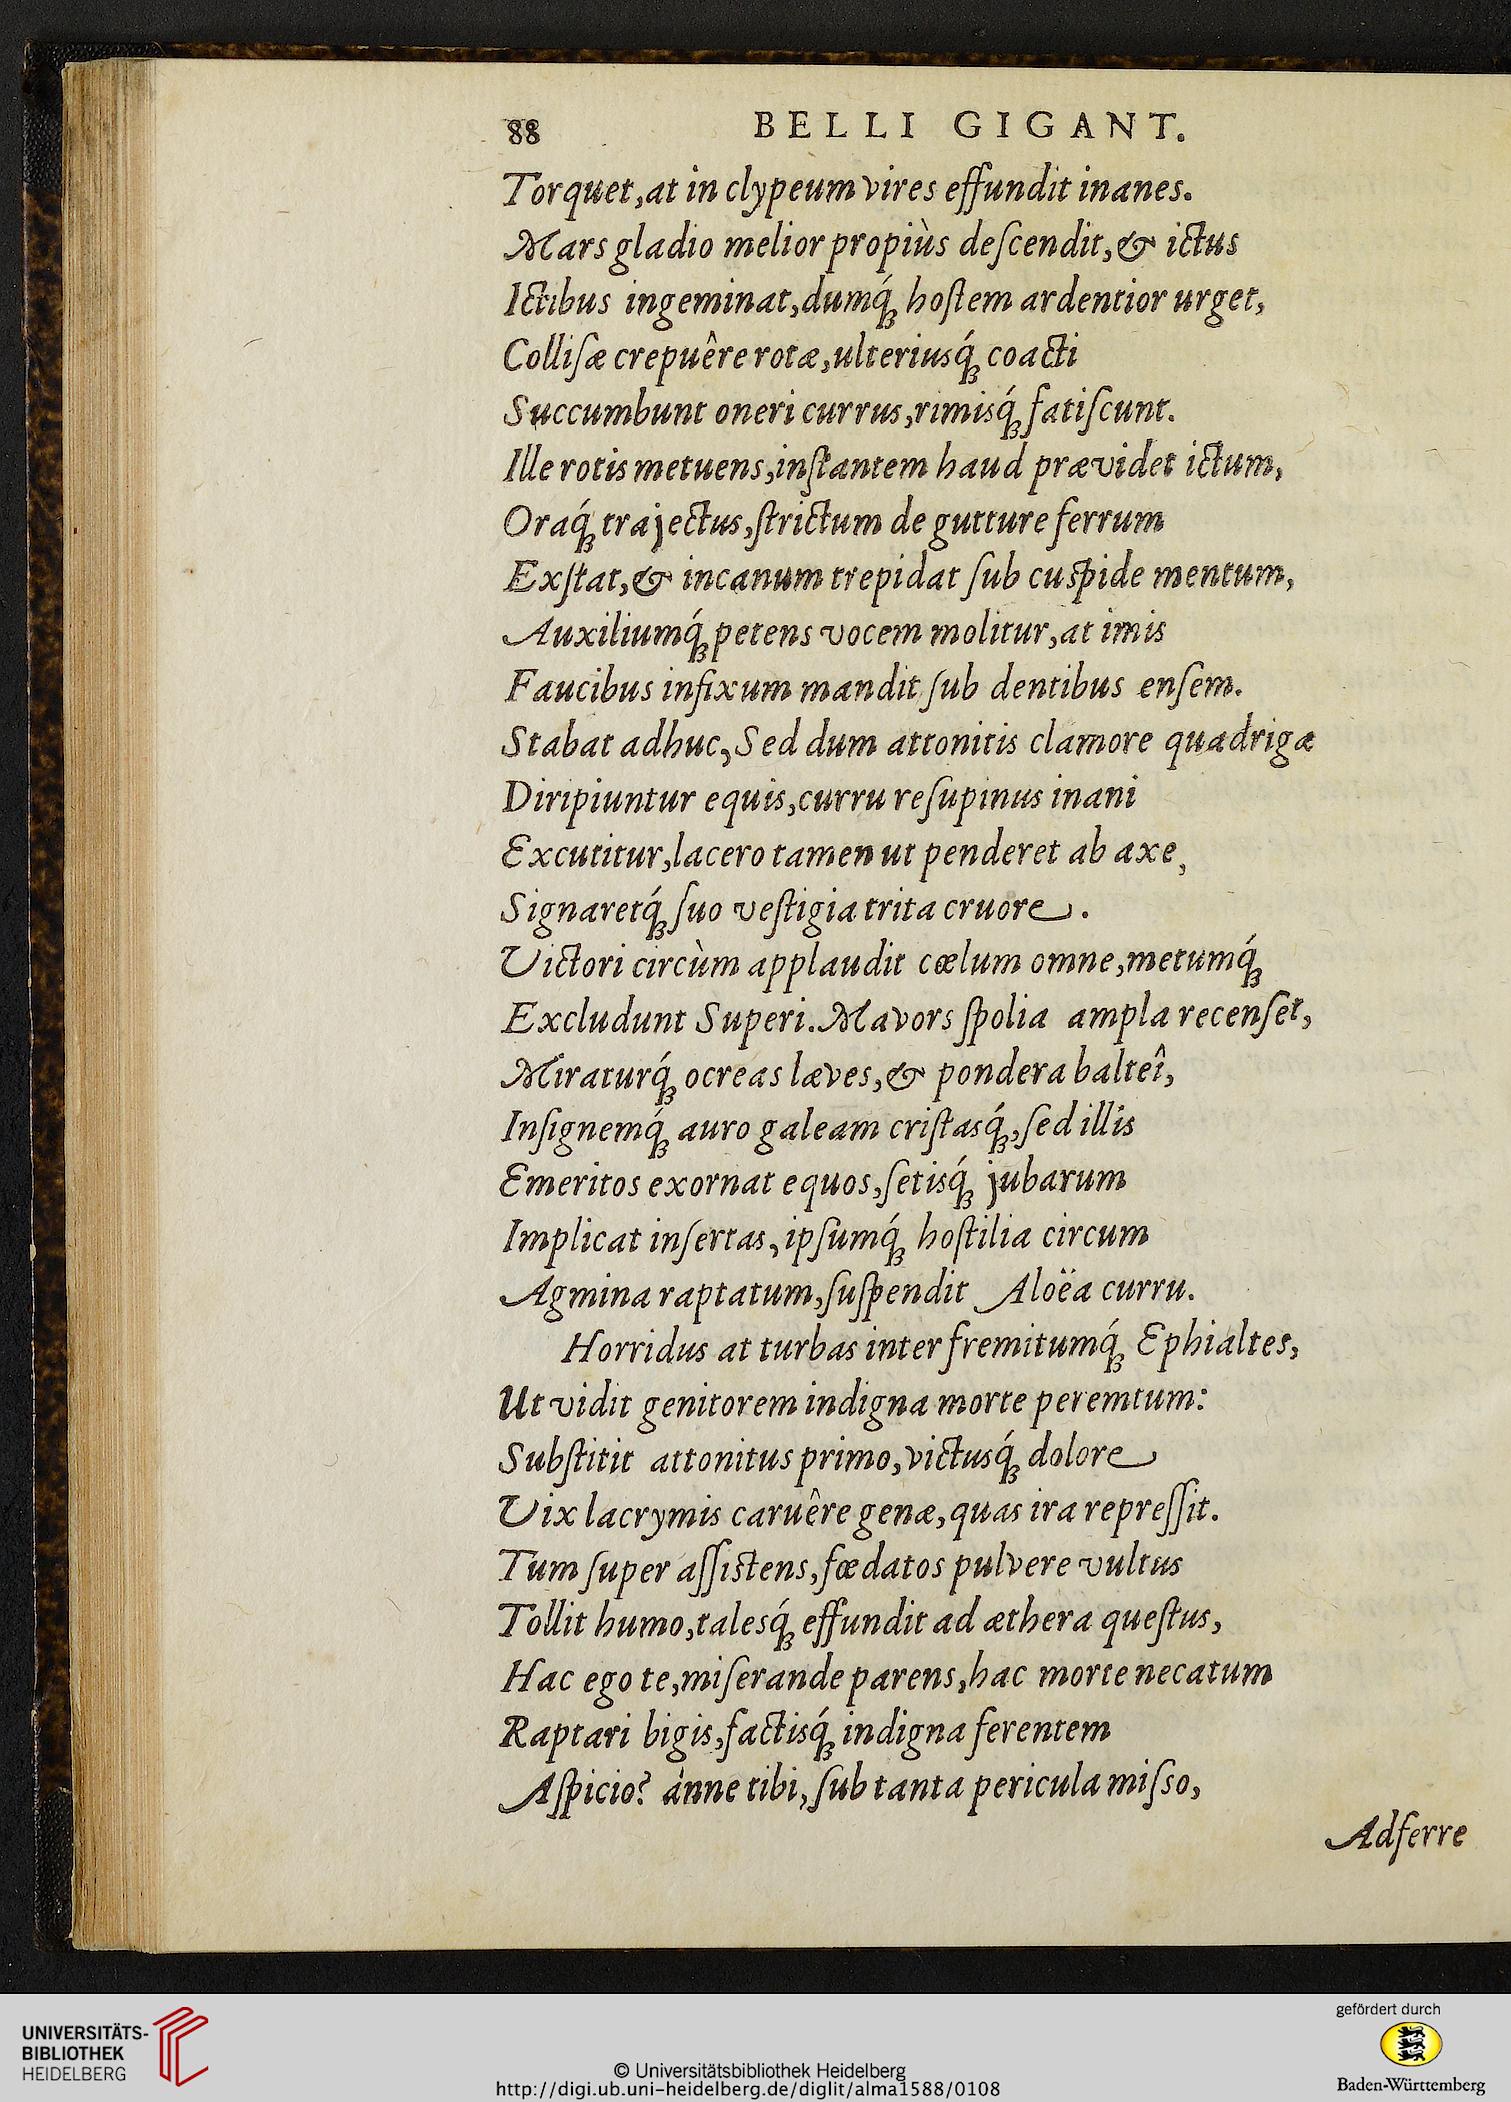 88 BELLI GIGANT.
Torquet, at in clypeum vires effundit inanes.
Mars gladio melior propiùs deſcendit, & ictus
Ictibus ingeminat, dumq́; hoſtem ardentior urget,
Colliſæ crepuêre rotæ, ulteriusq́; coacti
Succumbunt oneri currus, rimisq́; fatiſcunt.
Ille rotis metuens, inſtantem haud prævidet ictum,
Oraq́; trajectus, ſtrictum de gutture ferrum
Exſtat, & incanum trepidat ſub cuſpide mentum,
Auxiliumq́; petens vocem molitur, at imis
Faucibus infixum mandit ſub dentibus enſem.
Stabat adhuc, Sed dum attonitis clamore quadrigæ
Diripiuntur equis, curru reſupinus inani
Excutitur, lacero tamen ut penderet ab axe,
Signaretq́; ſuo veſtigia trita cruore.
Victori circùm applaudit cœlum omne, metumq́;
Excludunt Superi. Mavors ſpolia ampla recenſet,
Miraturq́; ocreas læves, & pondera balteî,
Inſignemq́; auro galeam criſtasq́;, ſed illis
Emeritos exornat equos, ſetisq́; jubarum
Implicat inſertas, ipſumq́; hoſtilia circum
Agmina raptatum, ſuſpendit Aloëa curru.
Horridus at turbas inter fremitumq́; Ephialtes,
Ut vidit genitorem indigna morte peremtum:
Subſtitit attonitus primo, victusq́; dolore
Vix lacrymis caruêre genæ, quas ira repreſſit.
Tum ſuper aſſiſtens, fœdatos pulvere vultus
Tollit humo, talesq́; effundit ad æthera queſtus,
Hac ego te, miſerande parens, hac morte necatum
Raptari bigis, factisq́; indigna ferentem
Aſpicio? ànne tibi, ſub tanta pericula miſso,
Adferre
UNIVERSITÄTS-
BIBLIOTHEK
HEIDELBERG
© Universitätsbibliothek Heidelberg
http://digi.ub.uni-heidelberg.de/diglit/alma1588/0108
gefördert durch
Baden-Württemberg